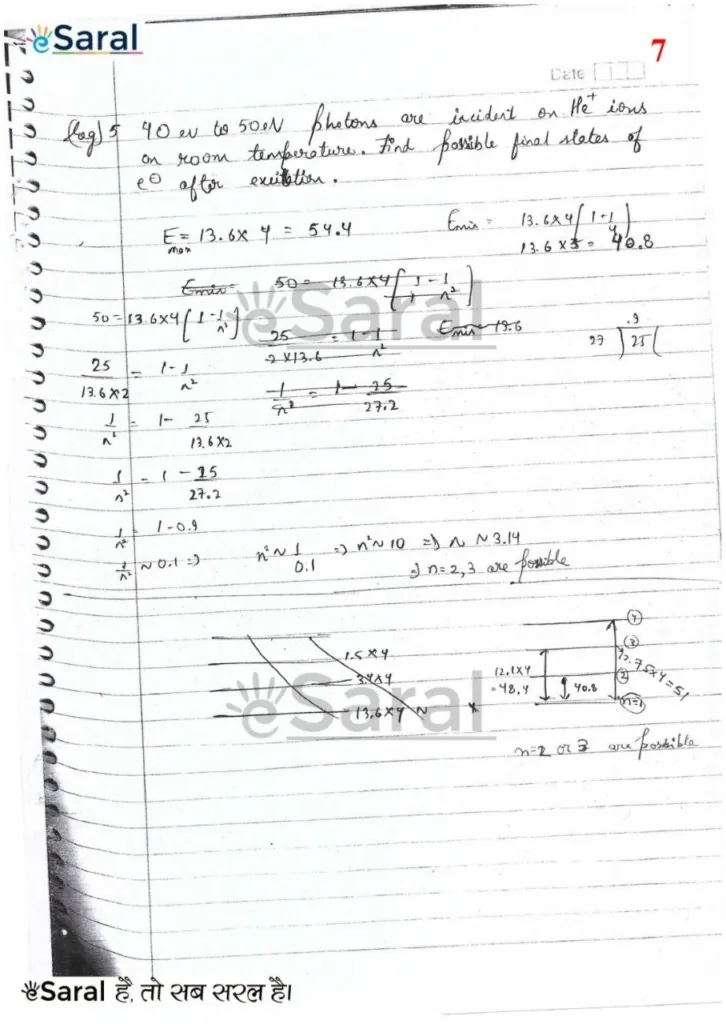 eSaral
7
Date
Q5 40 eV to 50eV photons are incident on He⁺ ions
on room temperature. Find possible final states of
e⊖ after excitation.
E = 13.6 × 4 = 54.4
max
Emin = 13.6×4[1-1/4]
13.6×3 = 40.8
Emin = 50 = 13.6×4[1-1/n²]
50 = 13.6×4[1-1/n²]
25/2×13.6 = 1-1/n²
Emin 13.6
.9
27)25(
25/13.6×2 = 1-1/n²
1/n² = 1-25/27.2
1/n² = 1- 25/13.6×2
1/n² - 1 - 25/27.2
1/n² = 1-0.9
1/n² ~ 0.1 ⇒) n² ~ 1/0.1 ⇒) n² ~ 10 ⇒) n ~ 3.14
⇒) n=2,3 are possible
eSaral
1.5×4
3.4×4
13.6×4
4
3
2
n=1
12.1×4
=48.4
40.8
12.75×4=51
eSaral
n=2 or 3 are possible
eSaral है, तो सब सरल है।